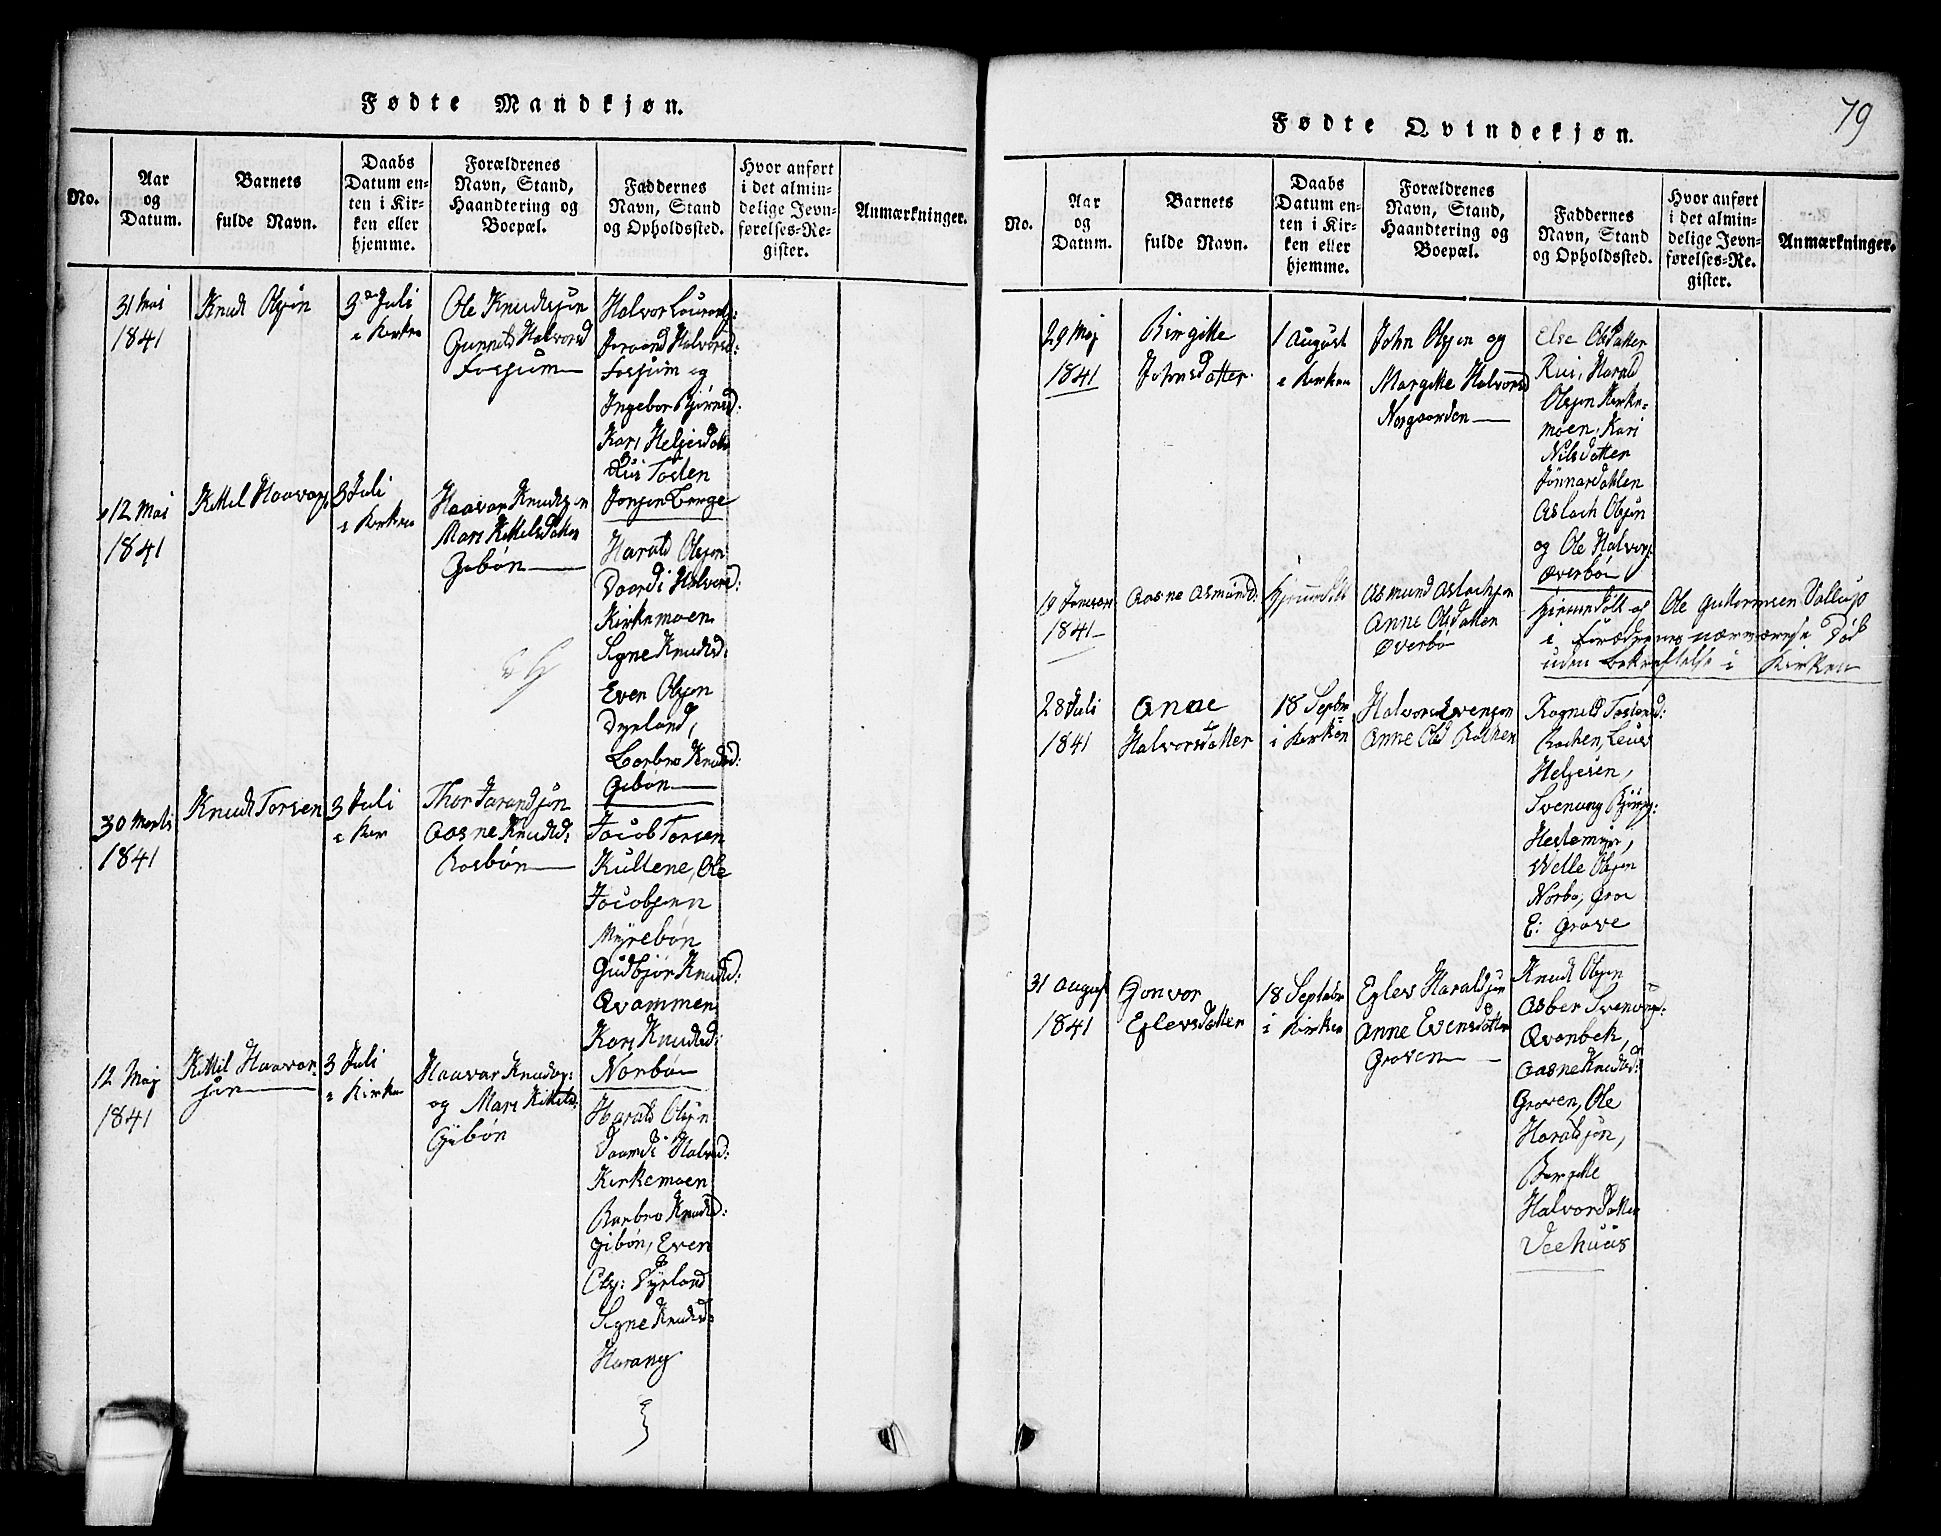 Fødte Mandkjøn.
No.
Aar
og
Datum.
Barnets
fulde Navn.
Daabs
Datum en-
ten i Kir-
ken eller
hjemme.
Forældrenes
Navn, Stand,
Haandtering og
Boepæl.
Faddernes
Navn, Stand
og Opholdssted.
Hvor anført
i det almin-
delige Jevn-
førelses-Re-
gister.
Anmærkninger.
31 Mai
1841
Knud Olsøn
3 Juli
i Kirken
Ole Knudssøn
Gunnild Halvorsd
Fossum
Halvor
Halvorsd:
Fossum og
Ingebor Bjørnsd:
Kari Helgesdatt
Rui Tosten
Berge
12 Mai
1841
Kittil Haavars
3 Juli
i Kirken
Haavar Knudsøn
Mari Kittilsdatter
Gibøn
Harald Olsøn
Halvorsd:
Kirkemoen
Signe Knudsd:
Even Olsøn
Dyrland,
Barbro Knudsd:
Gibøn
30 Marts
1841
Knud Torsen
3 Juli
i Kir
Thor Jarandsøn
Aasne Knudsd:
Rosbøn
Jacob Torsen
Kultene, Ole
Jacobsen
Myrebøn
Gudbjør Knudsd:
Qvammen
Kari Knudsd:
Norbø
12 Maj
1841
Kittil Haavar-
søn
3 Juli
i Kirken
Haavar Knuds:
og Mari Kittilsd:
Gibøn
Harald Olsøn
Halvsd:
Kirkemoen
Barbro Knudsd:
Gibøn, Even
Ols: Dyrland
Signe Knudsd:
Fødte Qvindekjøn.
79
No.
Aar
og
Datum.
Barnets
fulde Navn.
Daabs
Datum en-
ten i Kir-
ken eller
hjemme.
Forældrenes
Navn, Stand,
Haandtering og
Boepæl.
Faddernes
Navn, Stand
og Opholdssted.
Hvor anført
i det almin-
delige Jevn-
førelses-Re-
gister.
Anmærkninger.
29 Maj
1841
Birgitte
Johnsdatter
1 August
i Kirken
John Olsøn og
Margitte Halvorsd
Norgaarden
Else Olsdatter
Rui, Harald
Olsøn Kirke-
moen, Kari
Nilsdatter
Jønnardahlen
Aslach Olsøn
og Ole Halvors:
Øverbø
19 Januar
1841
Aasne Asmundsd:
hjemmedøbt
Asmund Aslachsøn
Anne Olsdatter
Øverbø
hjemmedøbt af Ole Guttormsen
i Forældrenes nærværelse Død
uden bekræftelse i Kirken
28 Juli
1841
Anne
Halvorsdatter
18 Septbr
i Kirken
Halvor Evensøn
Anne Olsd
Helgesen,
Svenung
Olsøn
Norbø, Groe
E: Grove
31 August
1841
Gonvor
Eglevsdatter
18 Septebr
i Kirken
Eglev Haraldsøn
Anne Evensdatter
Groven
Knud Olsøn
Asber
Qvanbek,
Aasne Knudsd:
Groven, Ole
Haraldsøn,
Bergitte
Halvorsdatter
Veehuus